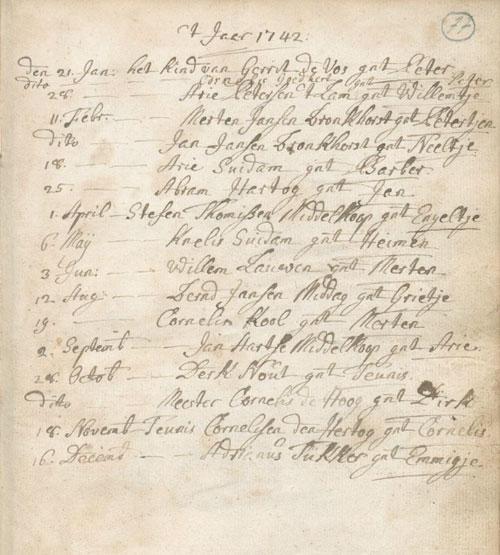 't Jaer 1742.
den 21. Jan: het kind van Gerrit de Vos gnt Peter
dito gnt Peter
28. — Arie Petersen 't Lam gnt Willemtje
11. Febr. — Merten Jansen Bronkhorst gnt Petertjen
dito Jan Jansen Bronkhorst gnt Neeltje
18. — Arie Suidam gnt Barber
25. — Abram Hartog gnt Jan
1. April — Stefen Thomissen Middelkoop gnt Engeltje
6. Maij — Knelis Suidam gnt Heimen
3 Jun: — Willem Lauwen gnt Merten
12. Aug: — Bernd Jansen Middag gnt Grietje
19. — Cornelis Kool gnt Merten
2. Septemb — Jan Hartse Middelkoop gnt Arie
28. Octob — Derk Nout gnt Teunis
dito Meester Cornelis de Hoog gnt Dirk
18. Novemb Teunis Cornelisen den Hertog gnt Cornelis
16. Decemb — Adrianus Tukker gnt Emmigje